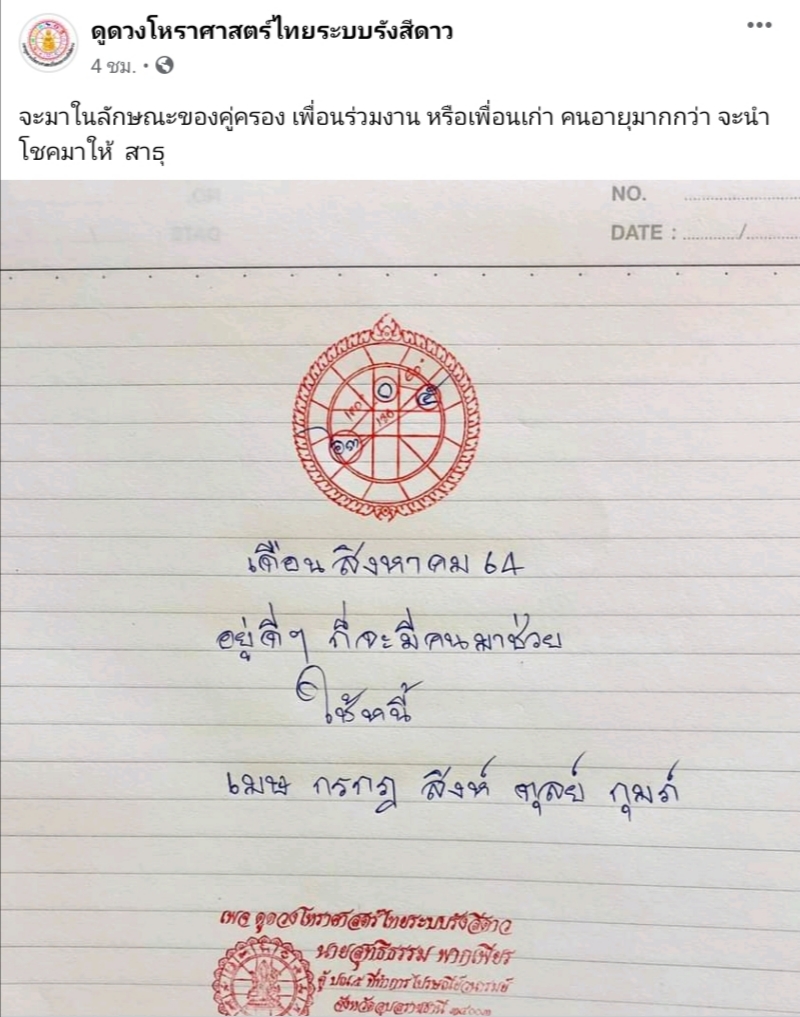 ดูดวงโหราศาสตร์ไทยระบบรังสีดาว
4 ชม.
จะมาในลักษณะของคู่ครอง เพื่อนร่วมงาน หรือเพื่อนเก่า คนอายุมากกว่า จะนำ
โชคมาให้ สาธุ
NO.
DATE : ............/............
๐
๕
๖๓
เดือน สิงหาคม 64
อยู่ดีๆ ก็จะมีคนมาช่วย
ใช้หนี้
เมษ กรกฎ สิงห์ ตุลย์ กุมภ์
เพจ ดูดวงโหราศาสตร์ไทยระบบรังสีดาว
นายสุทธิธรรม พากเพียร
ตู้ ปณ.๕ ที่ทำการไปรษณีย์
จังหวัดอุบลราชธานี